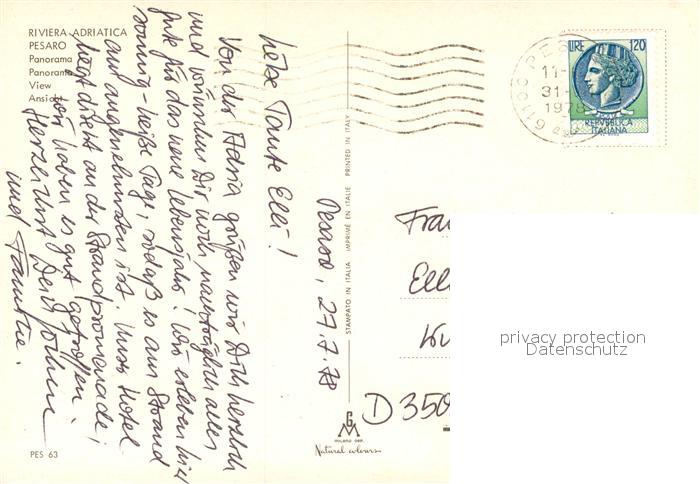 RIVIERA ADRIATICA
PESARO
Panorama
Panorama
View
Ansicht
Pesaro, 27.7.78
Liebe Tante Elli!
Von der Adria grüßen wir Dich herzlich
und wünschen Dir noch nachträglich alles
Gute für das neue Lebensjahr! Wir erleben hier
sonnig-heiße Tage, sodaß es am Strand
am angenehmsten ist. Unser Hotel
liegt direkt an der Strandpromenade,
wir haben es gut getroffen.
Herzlichst Dein
und Familie.
PES 63
STAMPATO IN ITALIA IMPRIMÉ EN ITALIE PRINTED IN ITALY
GM
MILANO DEP.
Natural colours
61100 PES
11-
31-
1978
LIRE 120
REPVBBLICA
ITALIANA
Frau
Elli
D 350
privacy protection
Datenschutz